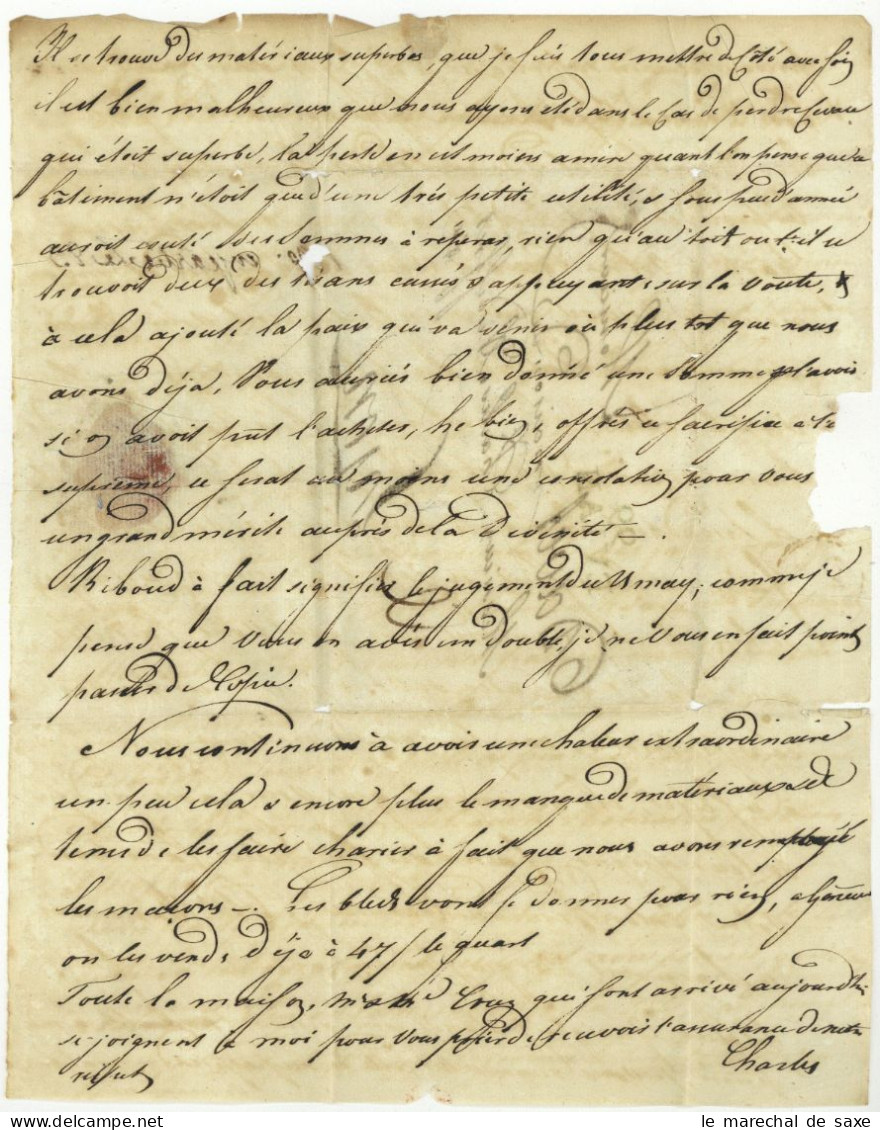 Il se trouve des matériaux superbes, que je fais tous mettre de Coté avec soin
il est bien malheureux que nous ayons eté dans le Cas de perdre
qui étoit superbe, la perte en est moins amere quant l'on pense que
bâtiment n'étoit que d'une trés petite utilité, & sous peu d'anneé
auroit couté des sommes à réparer, rien qu'au toit ou t-il
trouvoit deux des tirans cassés s'appuyant sur la voute, &
à cela ajouté la paix qui va venir où plus tot que nous
avons déja, Vous auriés bien donné une Somme p. l'avoir
si on avoit put l'acheter, he bien, offrés ce sacrifice a
supreme, ce serat au moins une consolation pour vous
un grand mérite auprés de la Divinité —.
Riboud à fait signifier le jugement du may; comme je
pense que vous en avés un double, je ne Vous en fait point
passer de Copie.
Nous continuons à avoir une chaleur extraordinaire
un peu cela & encore plus le manque de matériaux
tems de les faire charier à fait que nous avons
les maçons —. Les bleds vont se donner pour rien,
on les vend déja à 47/ le quart
Toute la maison, Cruz qui sont arrivé aujourdhui
se joignent à moi pour vous prier de recevoir l'assurance de notre
respect
Charles
le marechal de saxe